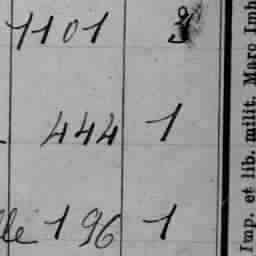 1101 3
444 1
lle 196 1
Imp. et lib. milit. Marc Imh